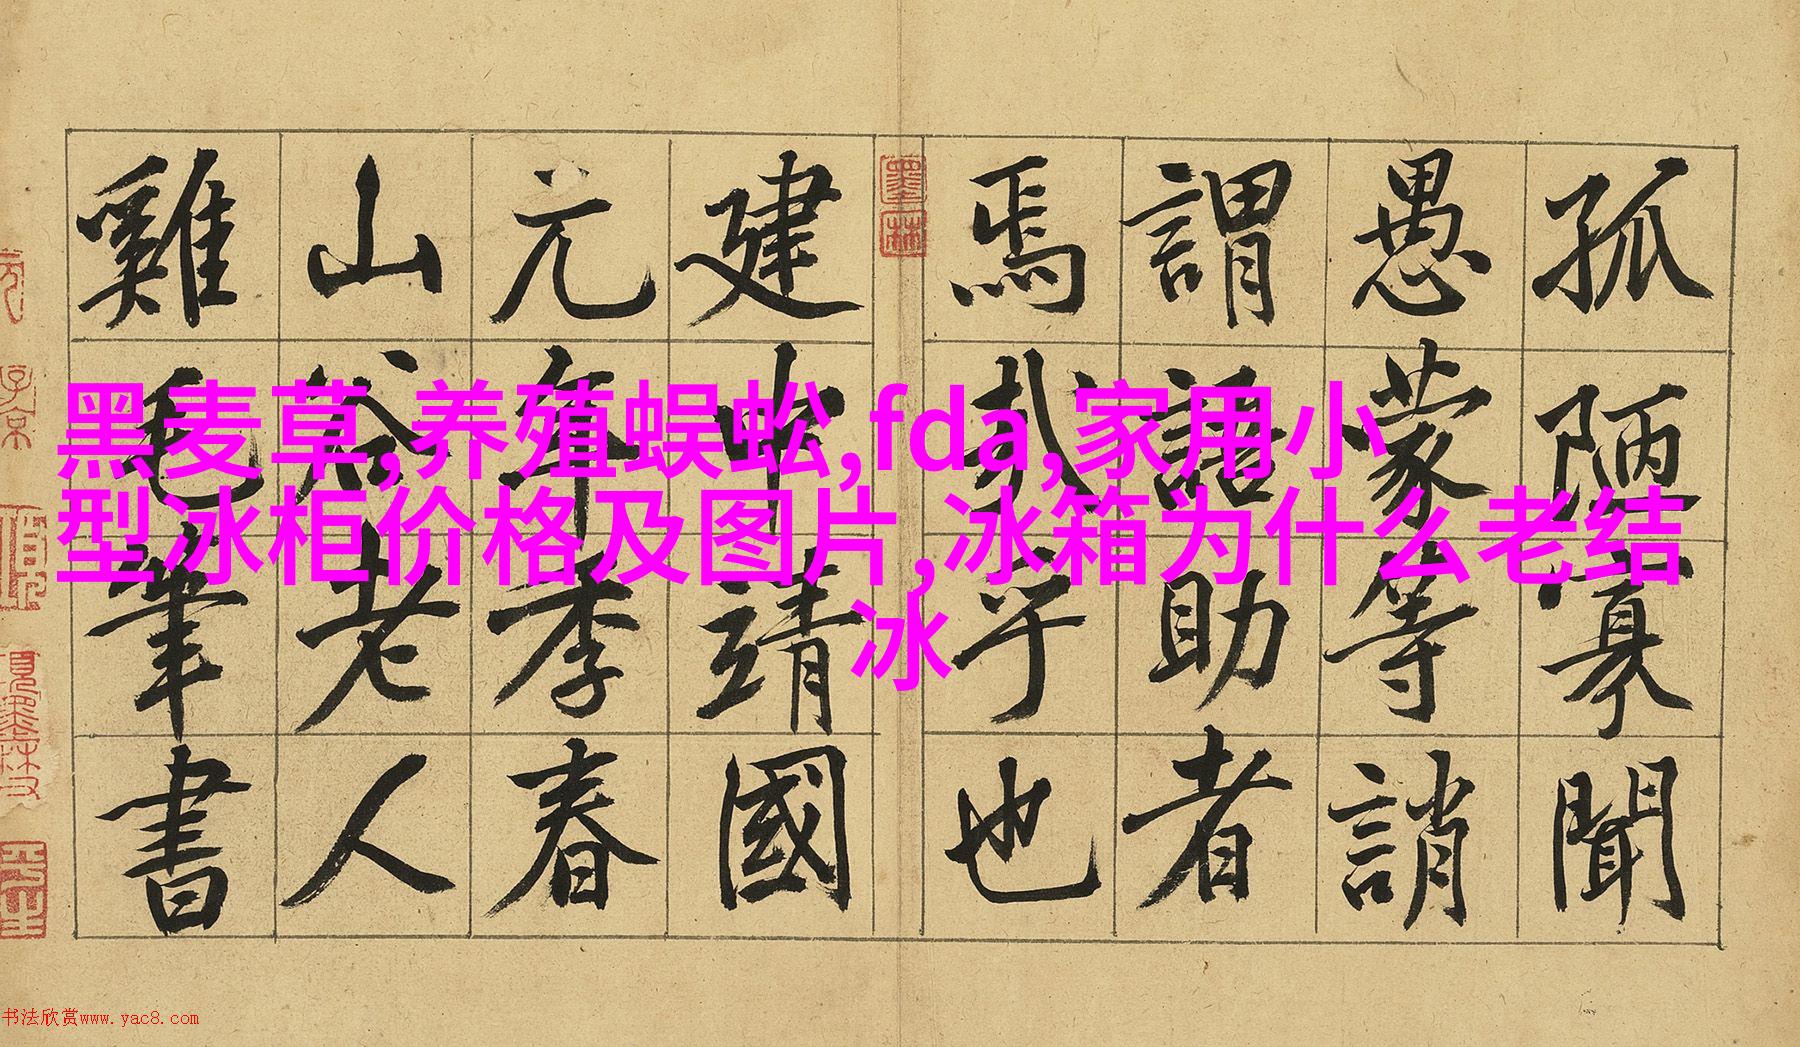 孤陋寡聞
愚蒙等誚
謂語助者
焉哉乎也
墨林
建中靖國
元年季春
山谷老人
雞毛筆書
子京
黑麦草,养殖蜈蚣,fda,家用小
型冰柜价格及图片,冰箱为什么老结
冰
书法欣赏www.yac8.com